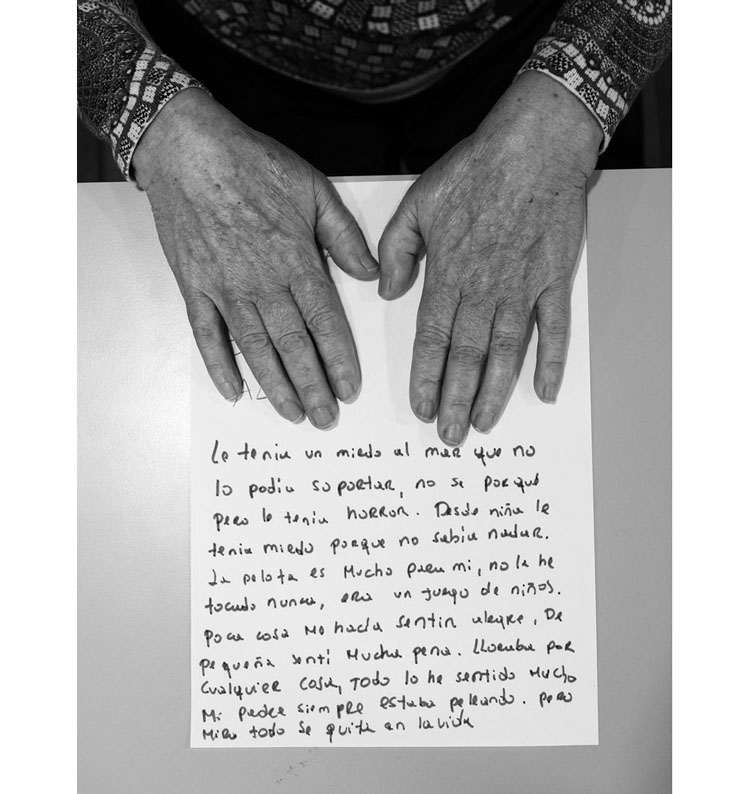 AL
Le tenia un miedo al mar que no
lo podia soportar, no se porqué
pero le tenia HORROR. Desde niña le
tenia miedo porque no sabia nadar.
La pelota es Mucho para mi, no la he
tocado nunca, era un juego de niños.
Poca cosa Me hacia sentir alegre, De
pequeña senti Mucha pena. Lloraba por
Cualquier Cosa, TODO lo he sentido Mucho
Mi Padre siempre estaba peleando. pero
Mira todo se quita en la vida